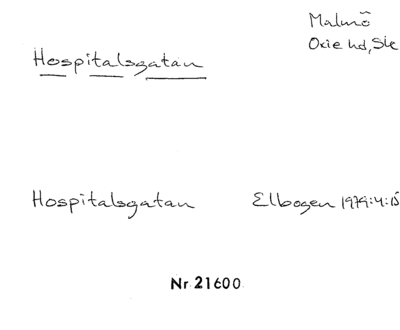 Malmö
Oxie hd, Sk
Hospitalsgatan
Hospitalsgatan Elbogen 1979:4:15
Nr 21600